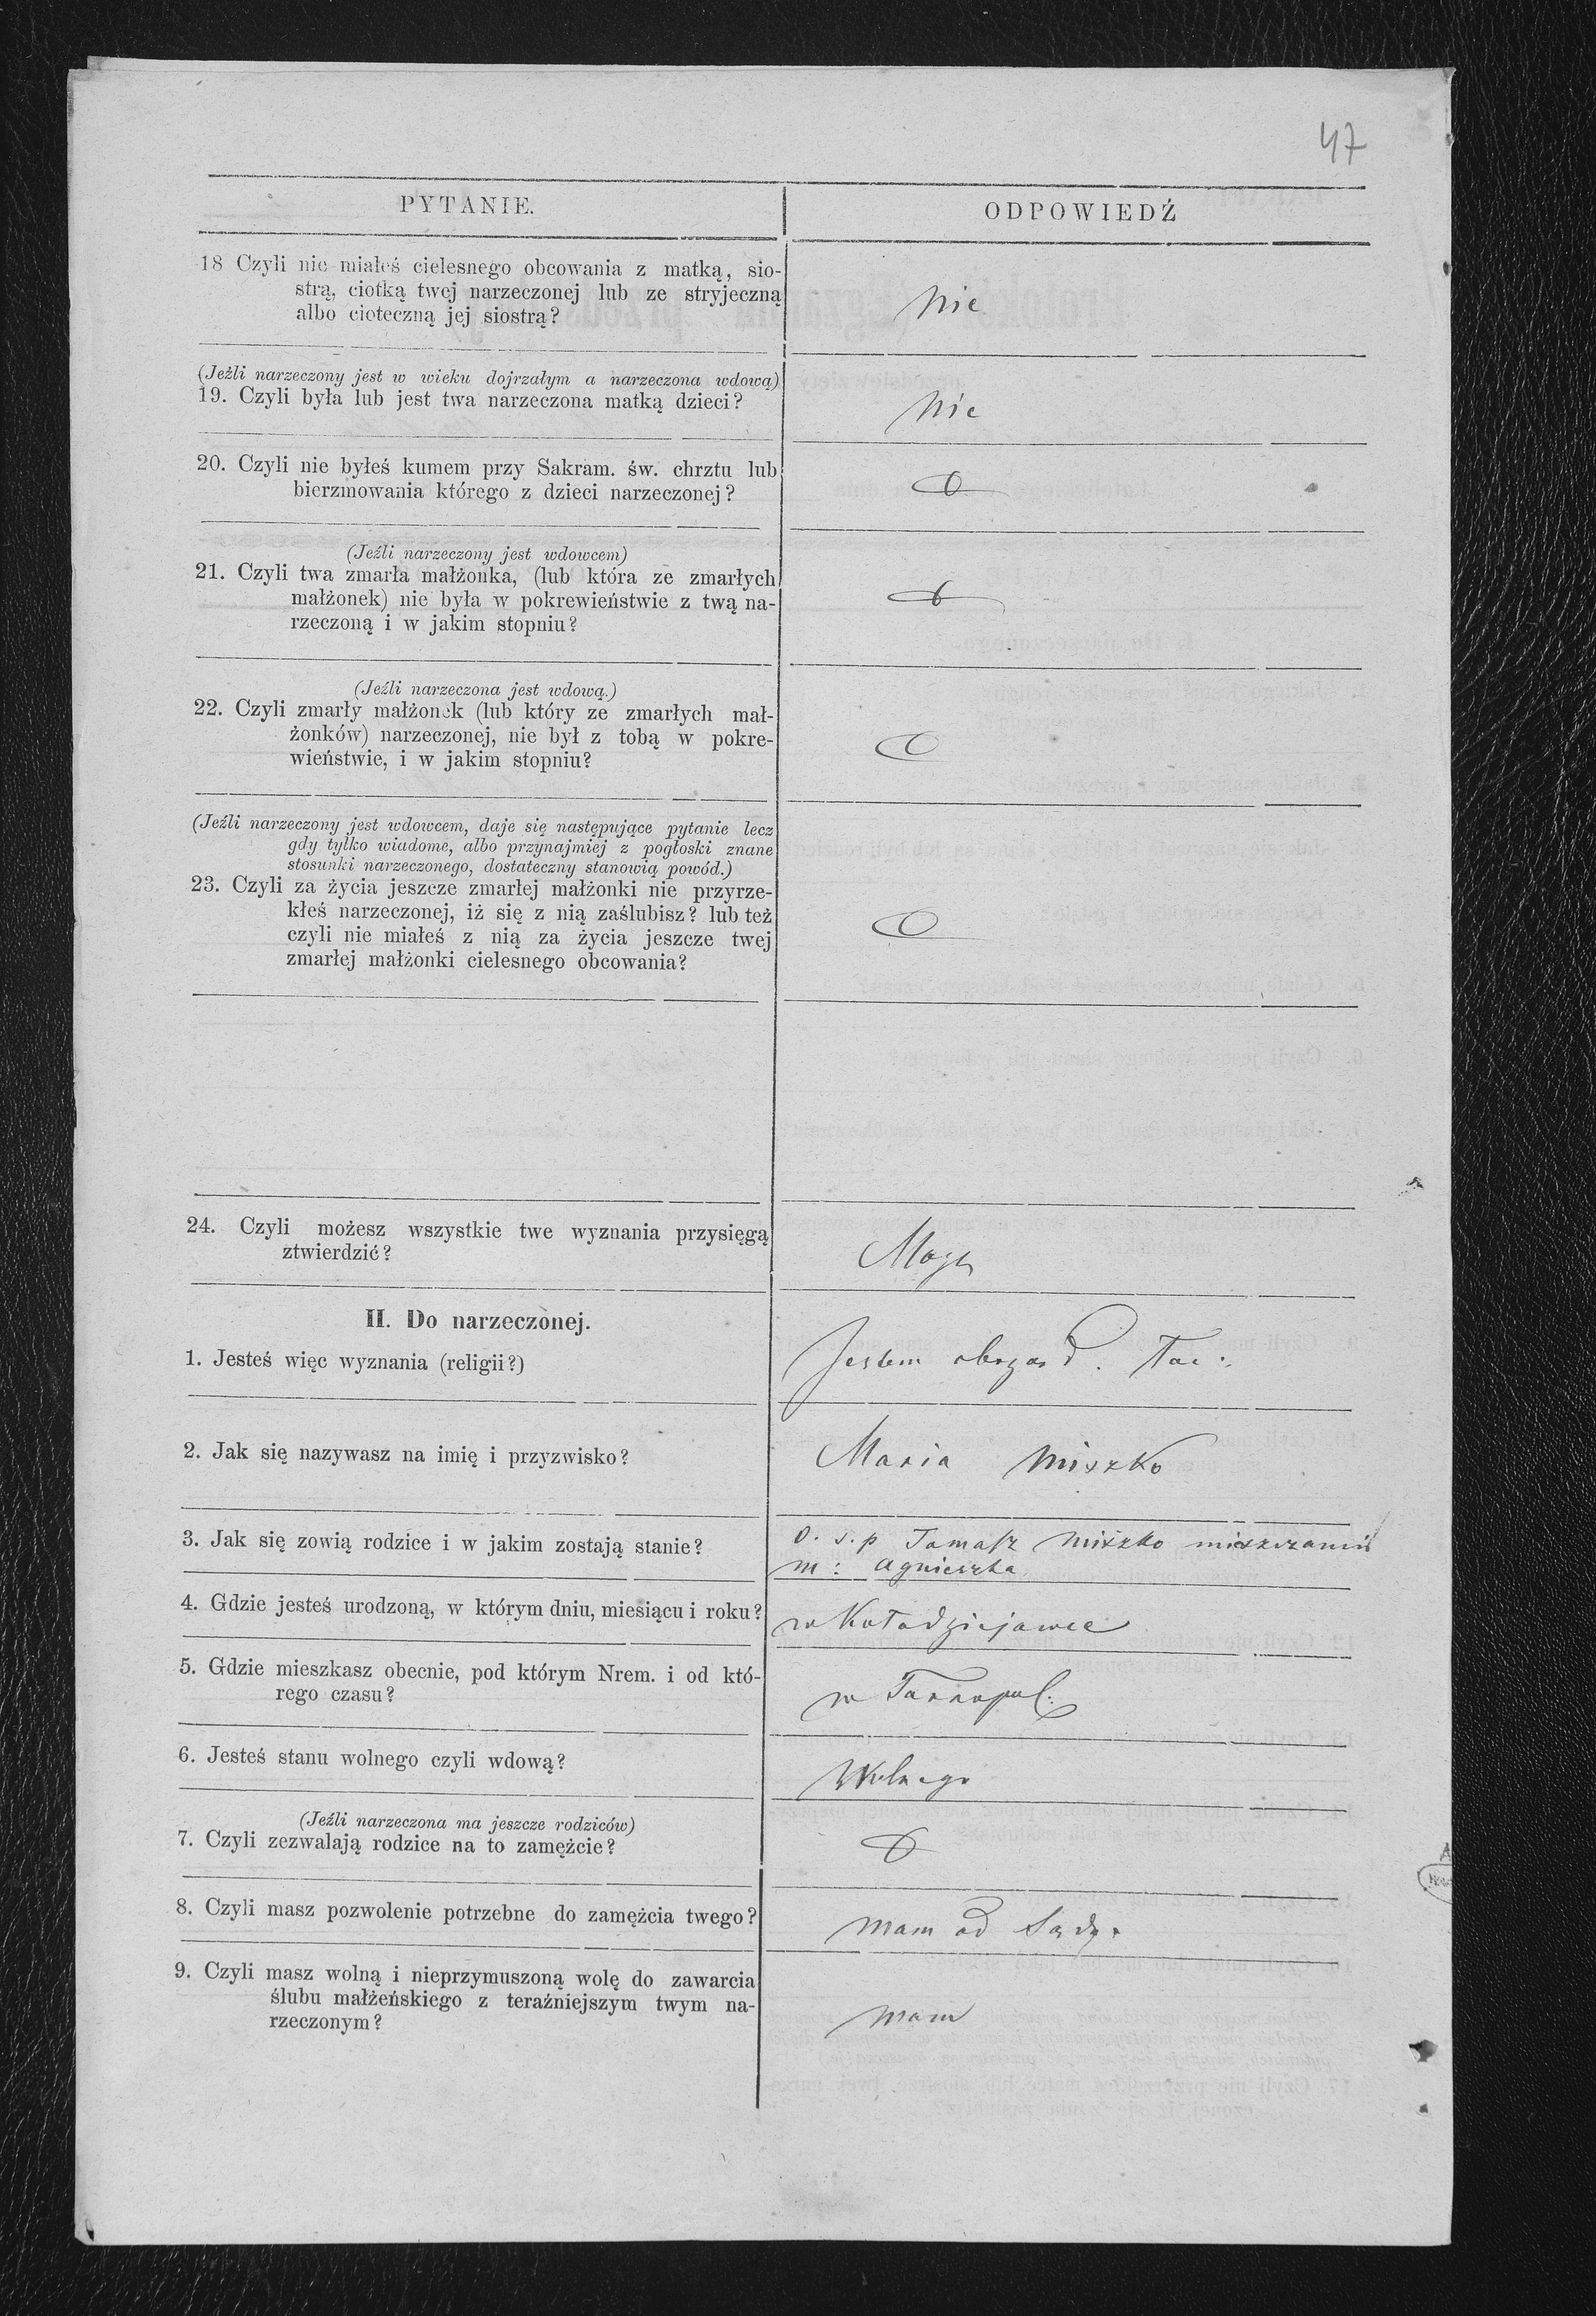 47
PYTANIE.
ODPOWIEDŹ
18 Czyli nie miałeś cielesnego obcowania z matką, sio-
strą, ciotką twej narzeczonej lub ze stryjeczną
albo cioteczną jej siostrą?
Nie
(Jeźli narzeczony jest w wieku dojrzałym a narzeczona wdową)
19. Czyli była lub jest twa narzeczona matką dzieci?
Nie
20. Czyli nie byłeś kumem przy Sakram. św. chrztu lub
bierzmowania którego z dzieci narzeczonej?
0
(Jeźli narzeczony jest wdowcem)
21. Czyli twa zmarła małżonka, (lub która ze zmarłych
małżonek) nie była w pokrewieństwie z twą na-
rzeczoną i w jakim stopniu?
0
(Jeźli narzeczona jest wdową.)
22. Czyli zmarły małżonek (lub który ze zmarłych mał-
żonków) narzeczonej, nie był z tobą w pokre-
wieństwie, i w jakim stopniu?
0
(Jeźli narzeczony jest wdowcem, daje się następujące pytanie lecz
gdy tylko wiadome, albo przynajmiej z pogłoski znane
stosunki narzeczonego, dostateczny stanowią powód.)
23. Czyli za życia jeszcze zmarłej małżonki nie przyrze-
kłeś narzeczonej, iż się z nią zaślubisz? lub też
czyli nie miałeś z nią za życia jeszcze twej
zmarłej małżonki cielesnego obcowania?
0
24. Czyli możesz wszystkie twe wyznania przysięgą
ztwierdzić?
Mogę
II. Do narzeczonej.
1. Jesteś więc wyznania (religii?)
Jestem obrząd. łac:
2. Jak się nazywasz na imię i przyzwisko?
Maria Miszko
3. Jak się zowią rodzice i w jakim zostają stanie?
O. ś.p Tomasz Miszko mieszczanin
m: Agnieszka
4. Gdzie jesteś urodzoną, w którym dniu, miesiącu i roku?
w Kołodziejowce
5. Gdzie mieszkasz obecnie, pod którym Nrem. i od któ-
rego czasu?
w Tarnopol:
6. Jesteś stanu wolnego czyli wdową?
Wolnego
(Jeźli narzeczona ma jeszcze rodziców)
7. Czyli zezwalają rodzice na to zamężcie?
0
8. Czyli masz pozwolenie potrzebne do zamężcia twego?
mam od Sądu.
9. Czyli masz wolną i nieprzymuszoną wolę do zawarcia
ślubu małżeńskiego z teraźniejszym twym na-
rzeczonym?
mam